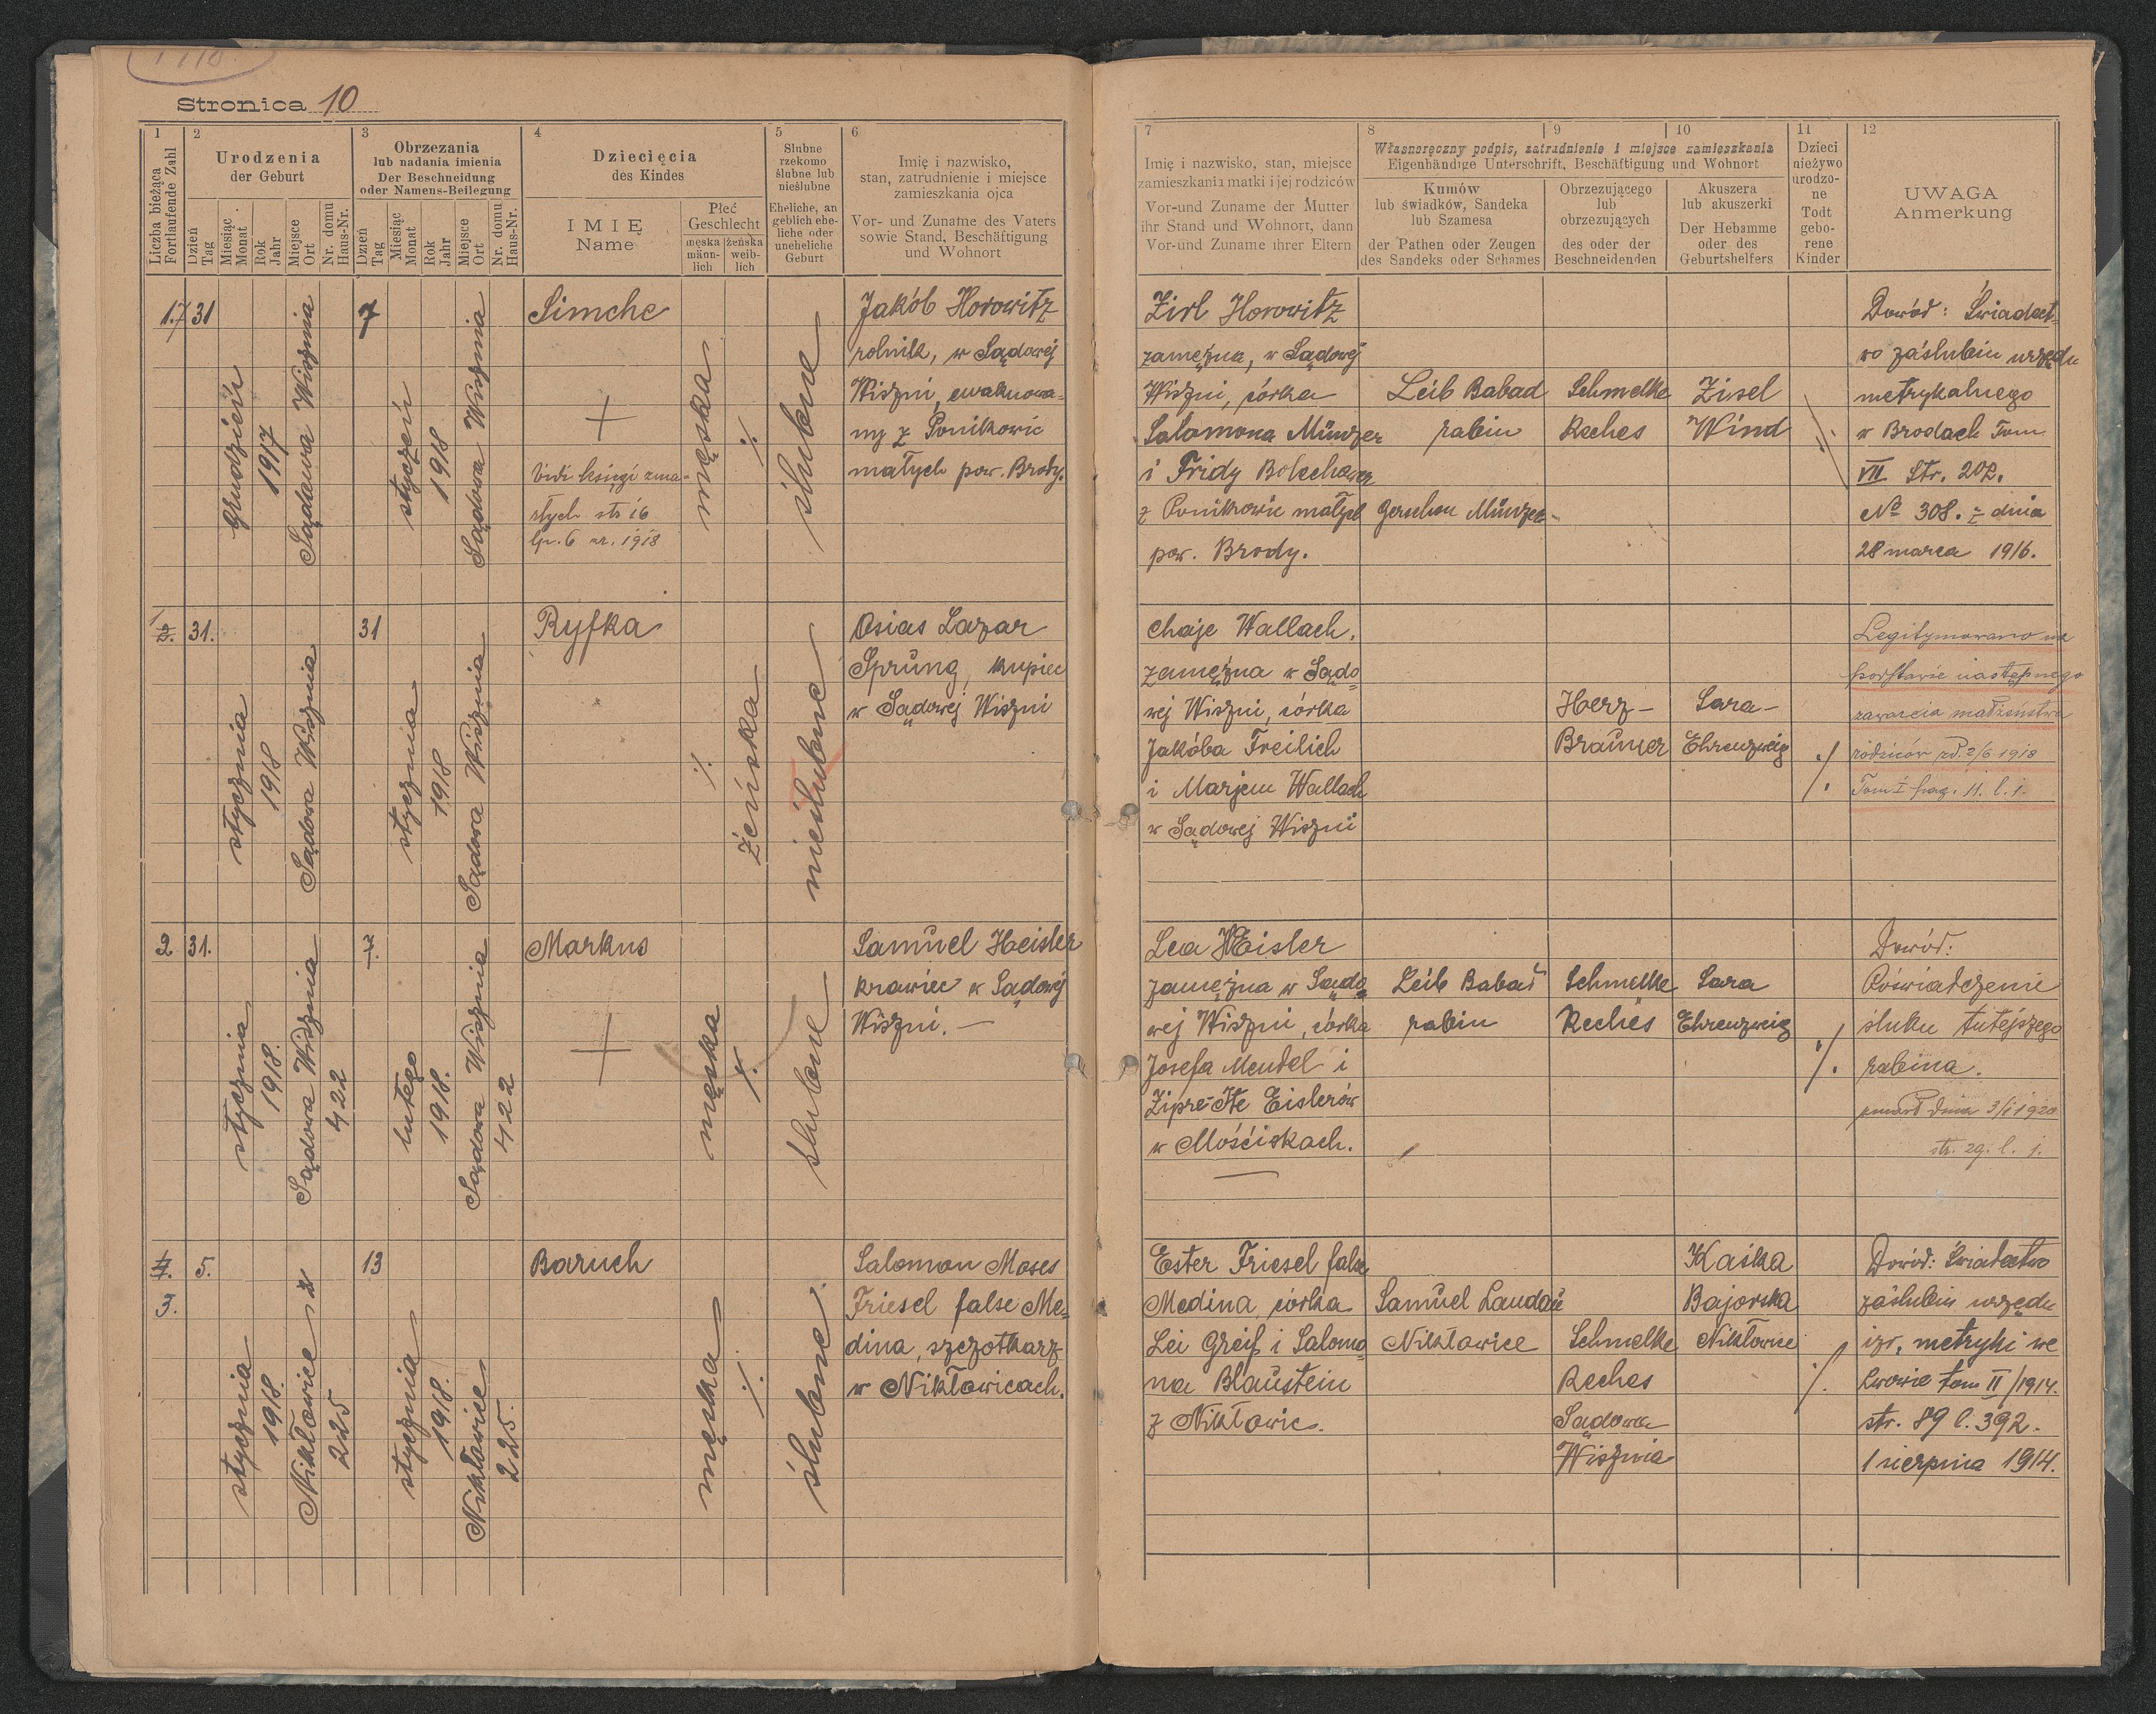 Stronica 10
1
Liczba bieżąca
Fortlaufende Zahl
2
Urodzenia
der Geburt
Dzień
Tag
Miesiąc
Monat
Rok
Jahr
Miejsce
Ort
Nr. domu
Haus-Nr.
3
Obrzezania
lub nadania imienia
Der Beschneidung
oder Namens-Beilegung
Dzień
Tag
Miesiąc
Monat
Rok
Jahr
Miejsce
Ort
Nr. domu
Haus-Nr.
4
Dziecięcia
des Kindes
IMIĘ
Name
Płeć
Geschlecht
męska
männ-
lich
żeńska
weib-
lich
5
Ślubne
rzekomo
ślubne lub
nieślubne
Eheliche, an
geblich ehe-
liche oder
uneheliche
Geburt
6
Imię i nazwisko,
stan, zatrudnienie i miejsce
zamieszkania ojca
Vor- und Zuname des Vaters
sowie Stand, Beschäftigung
und Wohnort
7
Imię i nazwisko, stan, miejsce
zamieszkania matki i jej rodziców
Vor-und Zuname der Mutter
ihr Stand und Wohnort, dann
Vor-und Zuname ihrer Eltern
8
9
10
Własnoręczny podpis, zatrudnienie i miejsce zamieszkania
Eigenhändige Unterschrift, Beschäftigung und Wohnort
Kumów
lub świadków, Sandeka
lub Szamesa
der Pathen oder Zeugen
des Sandeks oder Schames
Obrzezującego
lub
obrzezujących
des oder der
Beschneidenden
Akuszera
lub akuszerki
Der Hebamme
oder des
Geburtshelfers
11
Dzieci
nieżywo
urodzo-
ne
Todt
gebo-
rene
Kinder
12
UWAGA
Anmerkung
1.7
31
grudzień
1917
Sądowa Wisznia
7
styczeń
1918
Sądowa Wisznia
Simche
Vidi księgi zma-
rłych str 16
lp. 6 ar. 1918
męska
ślubne
Jakób Horowitz
rolnik, w Sądowej
Wiszni, ewakuowa-
ny z Ponikowic
małych pow. Brody.
Zirl Horowitz
zamężna, w Sądowej
Wiszni, córka
Salomona Münzer
i Fridy Bolechower
z Ponikowic małych
pow. Brody.
Leib Babad
rabin
Gerschon Münzer
Schmelke
Reches
Zisel
Wind
Dowód: Świadect-
wo zaślubin urzędu
metrykalnego
w Brodach Tom
VII Str. 202.
No 308. z dnia
28 marca 1916.
1
2.
31.
stycznia
1918
Sądowa Wisznia
31
stycznia
1918
Sądowa Wisznia
Ryfka
żeńska
nieślubne
Osias Lazar
Sprung, kupiec
w Sądowej Wiszni
Chaje Wallach,
zamężna w Sądo-
wej Wiszni, córka
Jakóba Freilich
i Marjem Wallach
w Sądowej Wiszni
Herz
Braüner
Sara
Ehrenzweig
Legitymowano na
podstawie następnego
zawarcia małżeństwa
rodziców zd 2/6 1918
Tom I pag. 11. l. 1.
2
31.
stycznia
1918.
Sądowa Wisznia
422
7.
lutego
1918.
Sądowa Wisznia
422
Markus
męska
ślubne
Samuel Heisler
krawiec w Sądowej
Wiszni.
Lea Eisler
zamężna w Sądo-
wej Wiszni, córka
Josefa Mendel i
Zipre-Ite Eislerów
w Mościskach.
Leib Babad
rabin
Schmelke
Reches
Sara
Ehrenzweig
Dowód:
Poświadczenie
ślubu tutejszego
rabina.
zmarł dnia 3/1 1920
str. 29. l. 1.
4.
3.
5.
stycznia
1918.
Nikłowice
225
13
stycznia
1918.
Nikłowice
225.
Baruch
męska
ślubne
Salomon Moses
Friesel false Me-
dina, szczotkarz
w Nikłowicach.
Ester Friesel false
Medina, córka
Lei Greiß i Salomo-
na Blaustein
z Nikłowic.
Samuel Landau
Nikłowice
Schmelke
Reches
Sądowa
Wisznia
Kaśka
Bajorska
Nikłowice
Dowód: Świadectwo
zaślubin urzędu
izr. metryki we
Lwowie tom II/1914.
str. 89 l. 392.
1 sierpnia 1914.